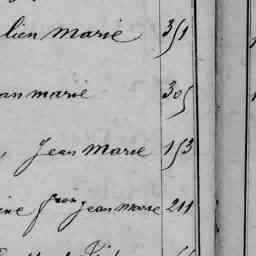 lien Marie 351
an marie 305
Jean Marie 153
ine fcois Jean Marie 211